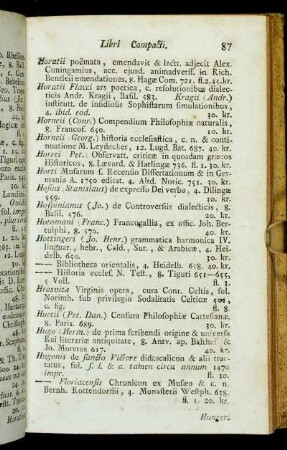 Libri Compacti. 87
Horatii poëmata, emendavit & lect. adjecit Alex.
Cuningamius, acc. ejusd. animadvers. in Rich.
Bentleii emendationes, 8. Hagæ Com. 721. fl. 2. 45. kr.
Horatii Flacci ars poetica, c. resolutionibus dialec-
ticis Andr. Kragii, Basil. 583. Kragii (Andr.)
institutt. de insidiosis Sophistarum simulationibus,
4. ibid. eod. 30. kr.
Horneii (Conr.) Compendium Philosophiæ naturalis,
8. Francof. 650. 10. kr.
Hornii (Georg.) historia ecclesiastica, c. n. & conti-
nuatione M. Leydecker, 12. Lugd. Bat. 687. 40. kr.
Horrei (Pet.) Observatt. criticæ in quosdam græcos
Historicos, 8. Levard. & Harlingæ 736. fl. 1. 30. kr.
Horti Musarum s. Recensio Dissertationum & in Ger-
mania A. 1750 editat. 4. Ahd. Noric. 751. 30. kr.
Hosius (Stanislaus) de expresso Dei verbo, 4. Dilingæ
559. 30. kr.
Hospinianus (Jo.) de Controversiis dialecticis, 8.
Basil. 576. 20. kr.
Hotomani (Franc.) Francogallia, ex offic. Joh. Ber-
tulphi, 8. 576. 40. kr.
Hottingeri (Jo. Henr.) grammatica harmonica IV.
linguar., hebr., Cald., Sur., & Arabicæ, 4. Heid-
delb. 659. 30. kr.
— Bibliotheca orientalis, 4. Heidelb. 658. 40. kr.
— Historia eccles. N. Test., 8. Tiguri 651—655,
5 Voll. fl. 3.
Hroswite Virginis opera, cura Conr. Celtis, fol.
Norimb. sub privilegio Sodalitatis Celticæ 501,
c. fig. fl. 8.
Huetii (Pet. Dan.) Censura Philosophiæ Cartesianæ,
8. Paris. 689. 30. kr.
Hugo (Herm.) de prima scribendi origine & universa
Rei literariæ antiquitate, 8. Antv. ap. Balthas. &
Jo. Moretos 617. 40. kr.
Hugonis de sancto Victore didascalicon & alii trac-
tatus, fol. s. l. & a. tamen circa annum 1470
impr. fl. 10.
— Floriacensis Chronicon ex Museo & c. n.
Bernh. Rottendorffii, 4. Monasterii Westph. 638.
fl. 1. 20. kr.